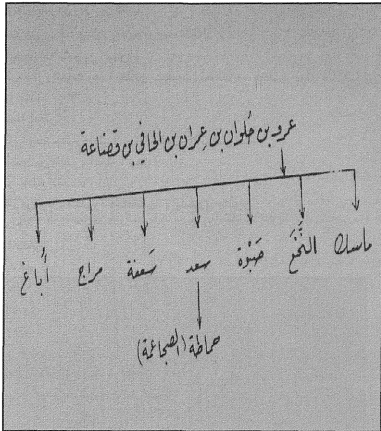 عمرو بن حُلوان بن عِمران بن الحافي بن قضاعة
ماسك النَّخَع ضَبْوة سعد سَعنة مراح أُباغ
حماطة (الضجاعمة)